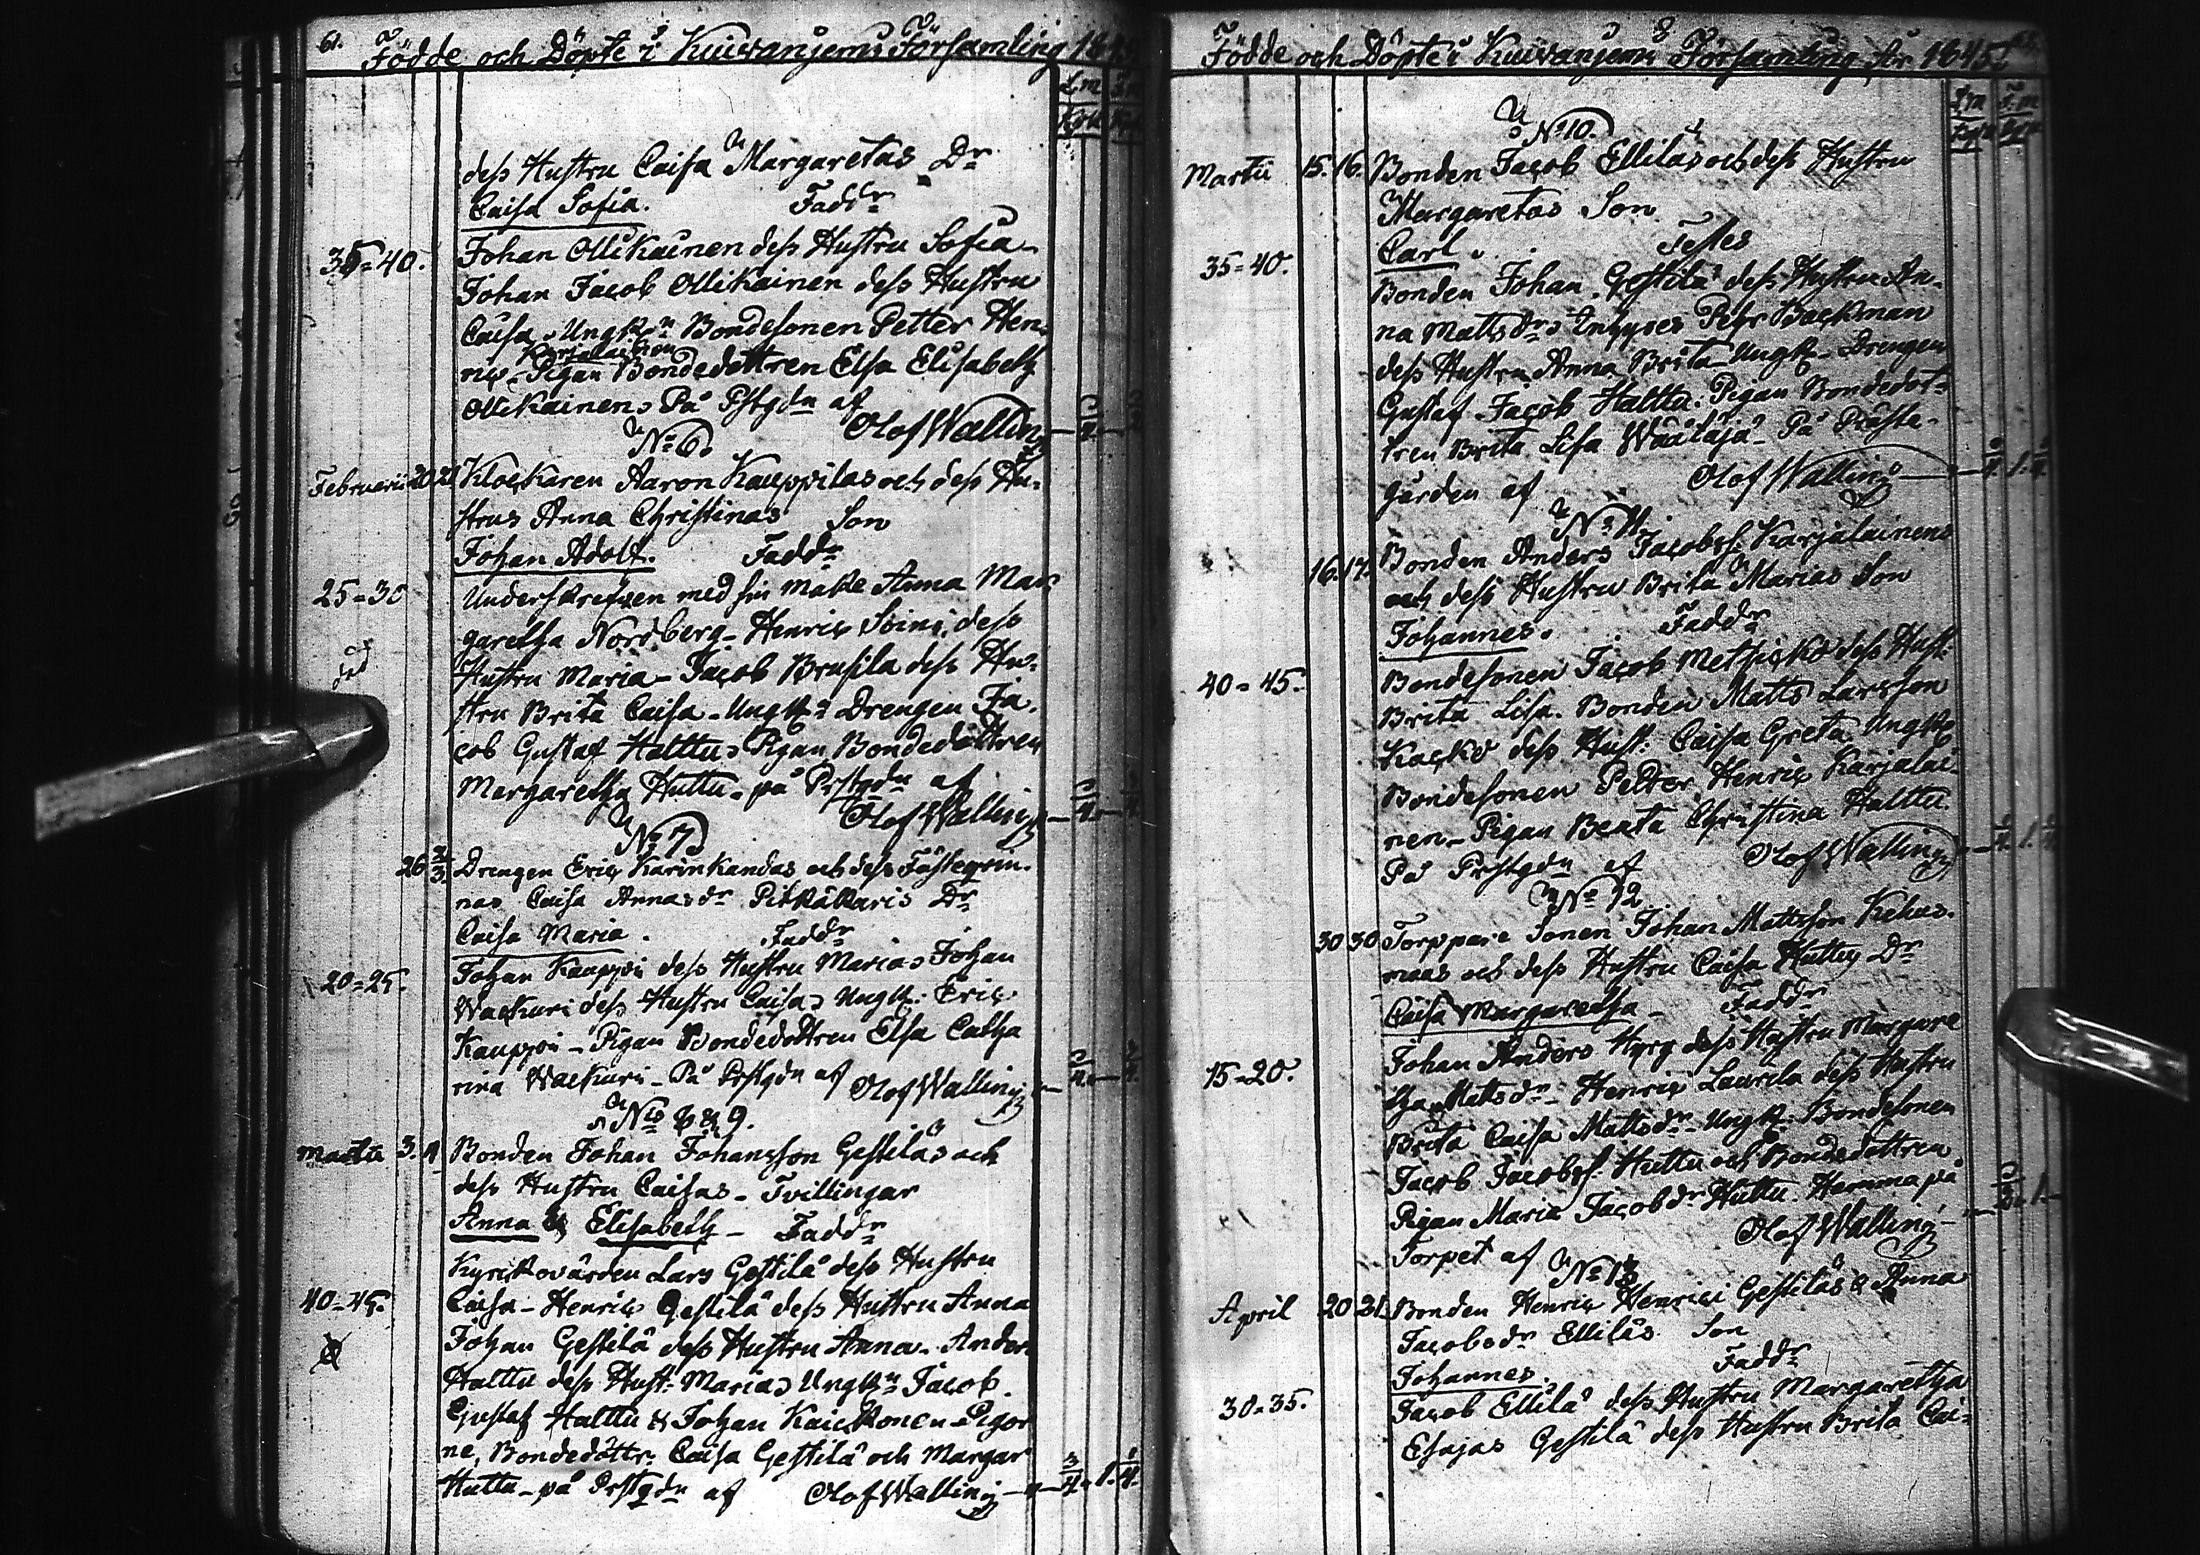 61. Födde och Döpte i Kuivaniemi Församling 1845
dess Hustru Caisa Margaretas Dr
Caisa Sofia. Faddr
35=40. Johan Ollikainen dess Hustru Sofia
Johan Jacob Ollikainen dess Hustru
Caisa, Bondesonen Petter Hen-
Karjalainen
ric - Pigan Bondedottren Elsa Elisabeth
Ollikainen, På Pstgdn af
Olof Walling
No 6.
Februarii 20 21 Klockaren Aaron Kauppilas och dess Hu-
strus Anna Christinas Son
Johan Adolf. Faddr
25=30 Underskrefven med sin maka Anna Mar
garetha Nordberg - Henric Soini, dess
Hustru Maria - Jacob Brusila dess Hu-
stru Brita Caisa - Ungk: Drengen Ja-
cob Gustaf Halttu, Pigan Bondedottren
Margaretha Huttu. på Prstgdn af
Olof Walling
No 7
26 2/3. Drengen Eric Karinkandas och dess Fästeqvin-
nas Caisa Annasdr Pitkäkaris Dr
Caisa Maria. Faddr
20=25. Johan Kauppi dess Hustru Maria, Johan
Wackuri dess Hustru Caisa, Ungk: Eric
Kauppi - Pigan Bondedottren Elsa Catha
rina Wackuri - På Prstgdn af Olof Walling
No 8 & 9.
Martii 3. 4 Bonden Johan Johansson Gestiläs och
dess Hustru Caisas - Tvillingar
Anna & Elisabeth - Faddr
Kyrckovärden Lars Gestilä dess Hustru
40=45. Caisa - Henric Gestilä dess Hustru Anna
Johan Gestilä dess Hustru Anna - Anders
Halttu dess Hust: Maria, Ungkn: Jacob
Gustaf Halttu & Johan Kaickonen - Pigor
ne, Bondedöttr: Caisa Gestilä och Margar
Huttu - på Prstgdn af Olof Walling - 3/4. 1. 1/4.
Födde och Döpte i Kuivaniemi Församling för 1845.
No 10.
Martii 15. 16. Bonden Jacob Ellilas och dess Hustru
Margaretas Son
Carl. Testes
35=40. Bonden Johan Gestilä dess Hustru An-
na Mattsdr, Pehr Backman
dess Hustru Anna Brita - Ungk - Drengen
Gustaf Jacob Halttu. Pigan Bondedot-
tren Brita Lisa Wäälajä - På Präste-
gården af Olof Walling
No 11.
16. 17. Bonden Anders Jacobss. Karjalainens
och dess Hustru Brita Marias Son
Johannes. Faddr
40=45. Bondesonen Jacob Metsicko dess Hust:
Brita Lisa. Bonden Matts Larsson
Kacko dess Hust: Caisa Greta Ungk
Bondesonen Petter Henric Karjalai-
nen - Pigan Beata Christina Halttu.
På Prstgdn af Olof Walling
No 12
30 30 Torppare Sonen Johan Mattsson Kekus-
maas och dess Hustru Caisa Huttus Dr
Caisa Margaretha - Faddr
15=20. Johan Anders Hyry dess Hustru Margare
tha Mattsdr - Henric Laurila dess Hustru
Brita Caisa Mattsdr - Ungk: Bondesonen
Jacob Jacobss. Huttu och Bondedottren
Pigan Maria Jacobsdr Huttu. Hemma på
Torpet af Olof Walling
No 13
April 20 21. Bonden Henric Henrici Gestiläs & Anna
Jacobsdr Elliläs Son
Johannes. Faddr
30=35. Jacob Ellilä dess Hustru Margaretha
Esajas Gestilä dess Hustru Brita Cai-